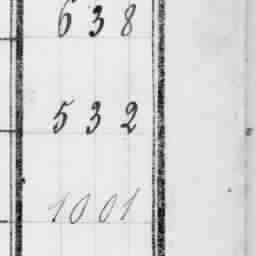 638
532
1001